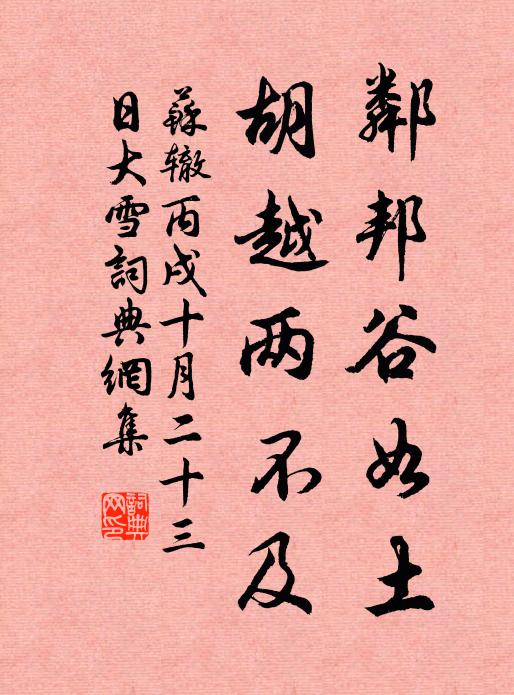 鄰邦谷如土
胡越两不及
蘇辙丙戌十月二十三
日大雪詞典網集
詞典
网印